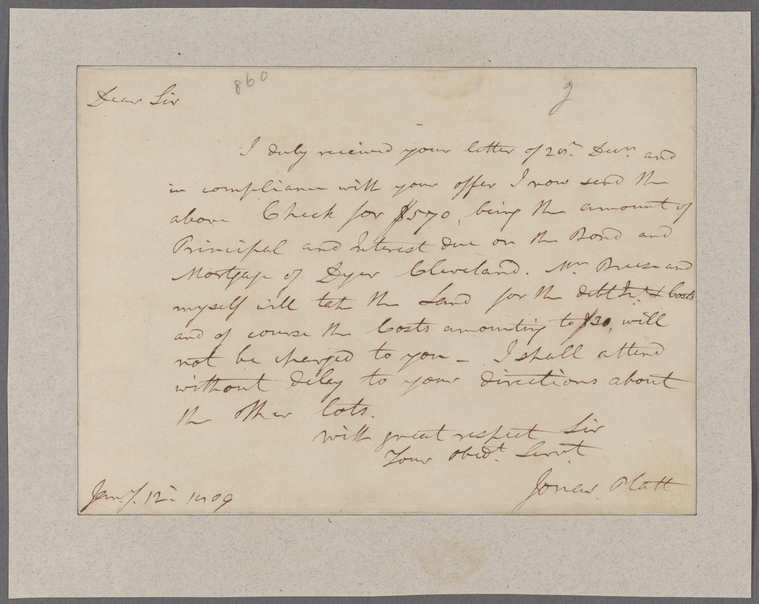 860
Dear Sir
I duly received your letter of 20th. Decr. and
in compliance with your offer I now send the
above Check for $570, being the amount of
Principal and Interest due on the Bond and
Mortgage of Dyer Cleveland. Mr. Breese and
myself will take the Land for the debt Int. & Costs
and of course the Costs amounting to $30, will
not be charged to you — I shall attend
without delay to your directions about
the other lots.
With great respect Sir
Your Obedt. Servt.
Jonas Platt
Jany. 12th. 1809